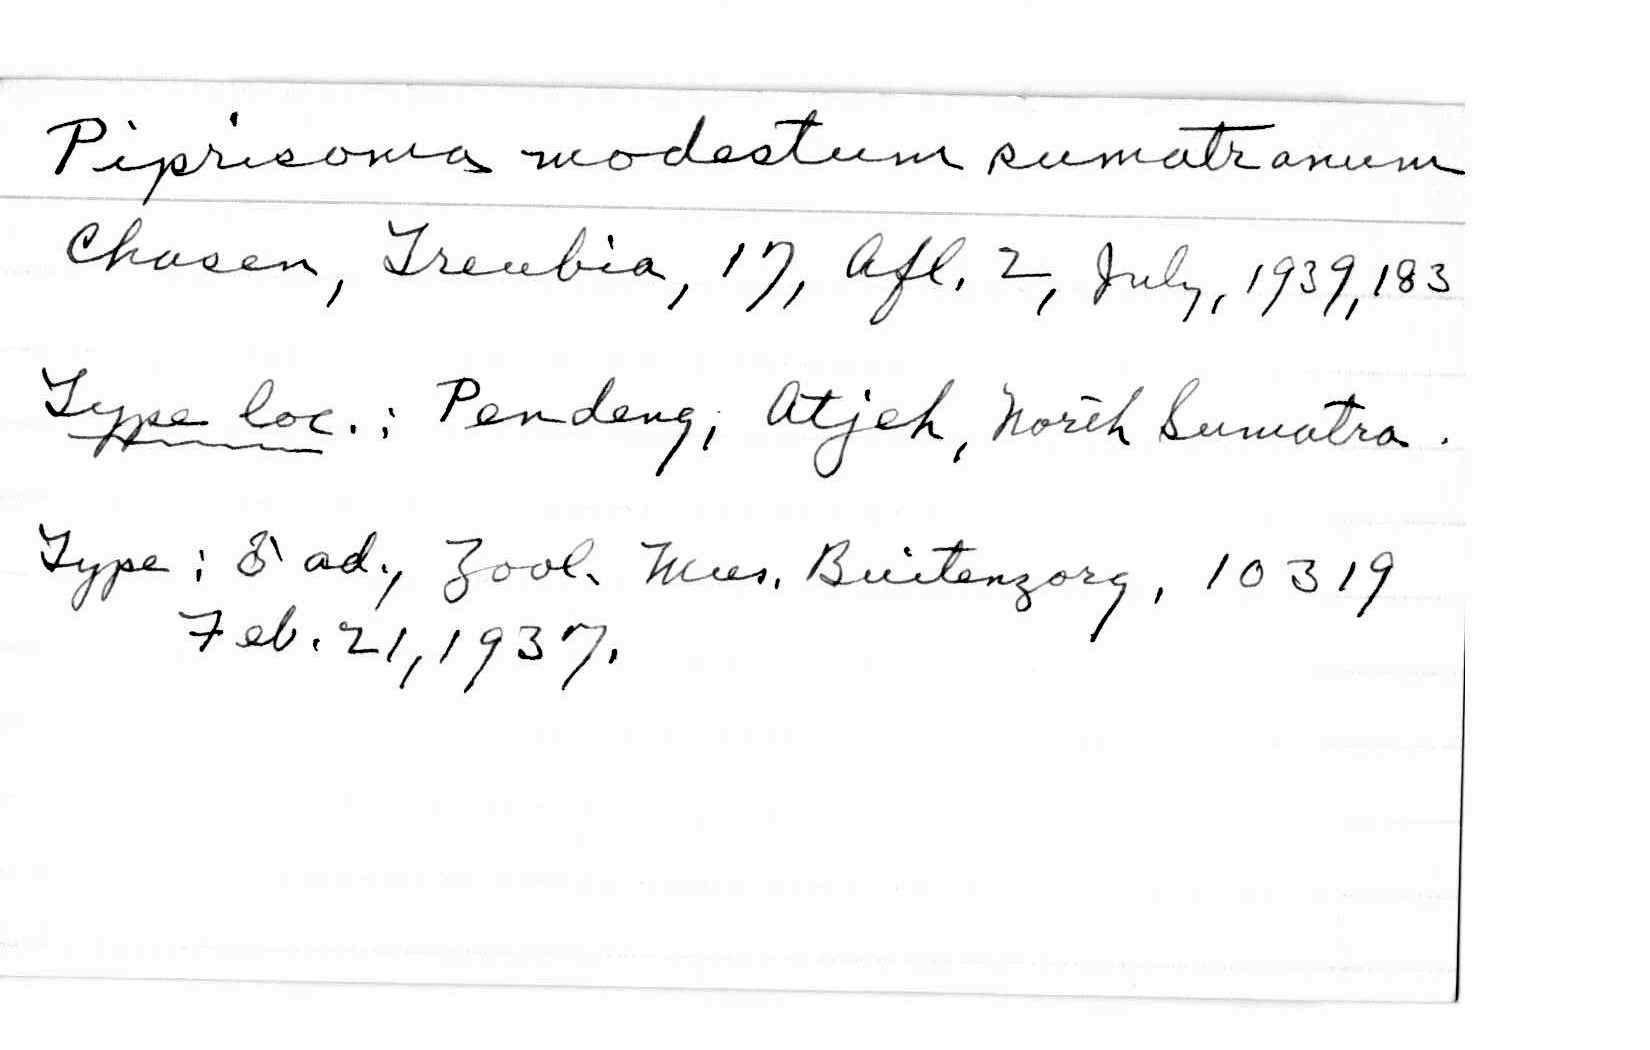 Piprisoma modestum sumatranum
Chasen, Treubia, 17, Afl. 2, July, 1939, 183
Type loc.: Pendeng, Atjeh, North Sumatra.
Type: ♂ ad., Zool. Mus. Buitenzorg, 10319
Feb. 21, 1937.